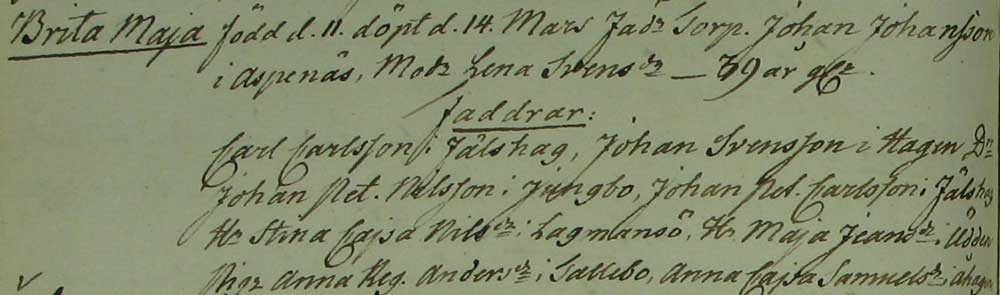 Brita Maja född d. 11. döpt d. 14. Mars Fadr Torp. Johan Johansson
i Aspenäs, Modr Lena Svensdr — 39 år gl.
faddrar:
Carl Carlsson i Fälshag, Johan Svensson i Hagen Dr
Johan Pet. Nilsson i Ljungbo, Johan Pet. Carlsson i Fälshag
Hr Stina Cajsa Nilsdr i Lagmansö, Hr Maja Jeansdr i Udden
Pigr Anna Reg. Andersdr i Sallebo, Anna Cajsa Samuelsdr i Åhagen